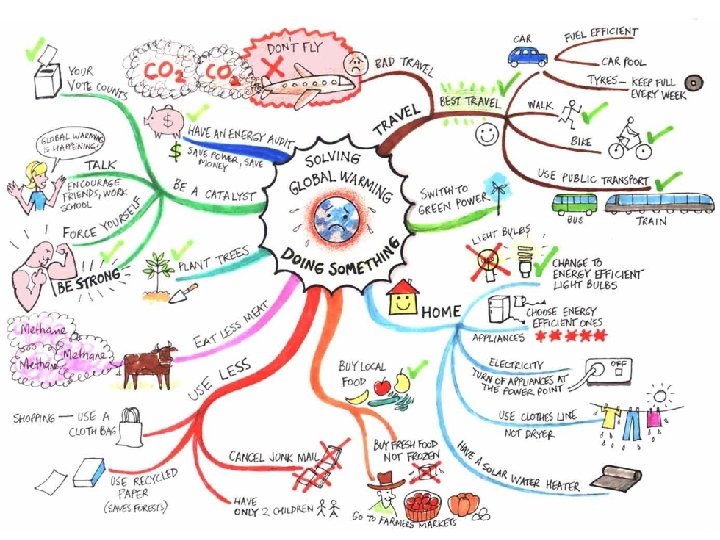 SOLVING
GLOBAL WARMING
DOING SOMETHING
TRAVEL
BAD TRAVEL
DON'T FLY
CO2
CO2
BEST TRAVEL
CAR
FUEL EFFICIENT
CAR POOL
TYRES — KEEP FULL
EVERY WEEK
WALK
BIKE
USE PUBLIC TRANSPORT
BUS
TRAIN
SWITH TO
GREEN POWER
HOME
LIGHT BULBS
CHANGE TO
ENERGY EFFICIENT
LIGHT BULBS
CHOOSE ENERGY
EFFICIENT ONES
APPLIANCES
ELECTRICITY
OFF
TURN OF APPLIANCES AT
THE POWER POINT
USE CLOTHES LINE
NOT DRYER
HAVE A SOLAR WATER HEATER
BUY LOCAL
FOOD
BUY FRESH FOOD
NOT FROZEN
GO TO FARMERS MARKETS
USE LESS
CANCEL JUNK MAIL
HAVE
ONLY 2 CHILDREN
SHOPPING — USE A
CLOTH BAG
USE RECYCLED
PAPER
(SAVES FORESTS)
EAT LESS MEAT
Methane
Methane
Methane
PLANT TREES
BE A CATALYST
YOUR
VOTE COUNTS
GLOBAL WARMING
IS HAPPENING!
TALK
ENCOURAGE
FRIENDS, WORK
SCHOOL
FORCE YOURSELF
BE STRONG
HAVE AN ENERGY AUDIT
$ SAVE POWER, SAVE
MONEY